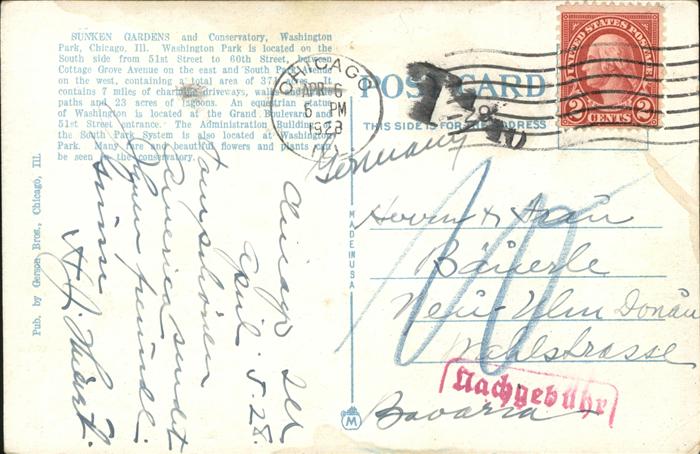 SUNKEN GARDENS and Conservatory, Washington
Park, Chicago, Ill. Washington Park is located on the
South side from 51st Street to 60th Street, between
Cottage Grove Avenue on the east and South Park Avenue
on the west, containing a total area of 371 acres. It
contains 7 miles of charming driveways, walks and bridle
paths and 23 acres of lagoons. An equestrian statue
of Washington is located at the Grand Boulevard and
51st Street entrance. The Administration Building of
the South Park System is also located at Washington
Park. Many rare and beautiful flowers and plants can
be seen in the conservatory.
Pub. by Gerson Bros., Chicago, Ill.
CHICAGO
APR 6
5 PM
1928
ILL
POST CARD
THIS SIDE IS FOR THE ADDRESS
UNITED STATES POSTAGE
2 CENTS 2
T
Germany
Herrn & Frau
Bäuerle
Neu-Ulm Donau
Wahlstrasse
Bavaria
10
Nachgebühr
MADE IN USA
M
Chicago Ill
April. 5. 28.
Amerika sendet